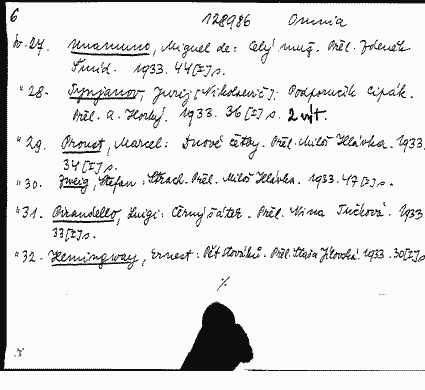 6 128986 Omnia
sv. 27. Unamuno, Miguel de: Celý muž. Přel. Zdeněk
Šmíd. 1933. 44[I]s.
" 28. Tynjanov, Jurij [Nikolaevič]: Podporučík Cipák.
Přel. A. Horký. 1933. 36[I]s. 2 výt.
" 29. Proust, Marcel: Přel. Miloš Hlávka. 1933.
34[I]s.
" 30. Zweig, Stefan: Strach. Přel. Miloš Hlávka. 1933. 47[I]s.
" 31. Pirandello, Luigi: Černý šátek. Přel. Nina Tučková. 1933
33[I]s.
" 32. Hemingway, Ernest: Pět Přel. Staša Jílovská. 1933. 30[I]s.
%